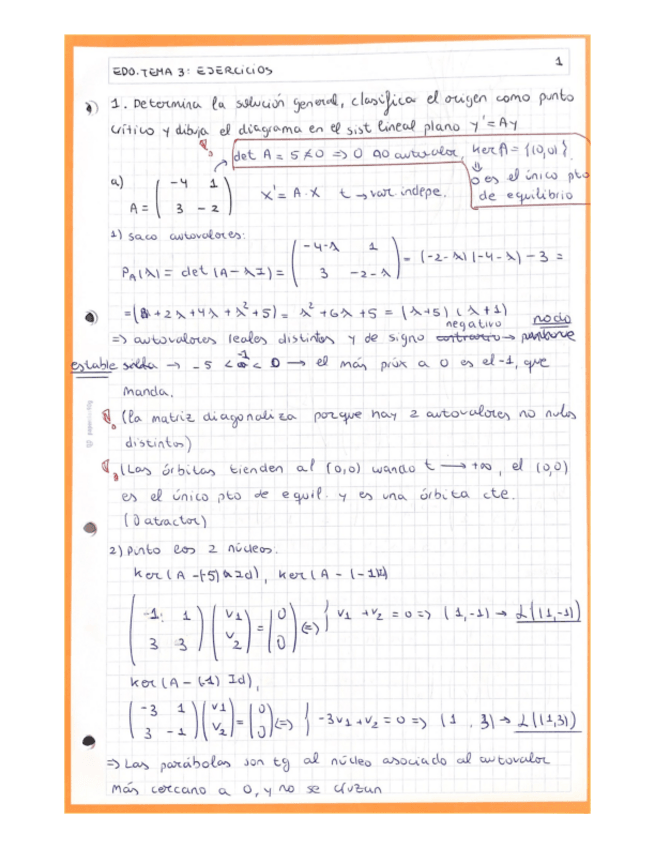 EDO. TEMA 3: EJERCICIOS
1
1. Determina la solución general, clasifica el origen como punto
crítico y dibuja el diagrama en el sist lineal plano y' = Ay
det A = 5 ≠ 0 => 0 no autovalor, ker A = {(0,0)}
⇓
0 es el único pto
de equilibrio
a)
A = ( -4 1
3 -2 )
X' = A·X t → var indepe.
1) saco autovalores:
P_A(λ) = det (A - λI) = ( -4-λ 1
3 -2-λ ) = (-2-λ)(-4-λ) - 3 =
+ 2λ + 4λ + λ² + 5) = λ² + 6λ + 5 = (λ+5)(λ+1)
negativo nodo
=> autovalores reales distintos y de signo contrario →
estable silla → -5 < -1 < 0 → el más próx a 0 es el -1, que
manda.
(la matriz diagonaliza porque hay 2 autovalores no nulos
distintos)
(Las órbitas tienden al (0,0) cuando t → +∞, el (0,0)
es el único pto de equil. y es una órbita cte.
(0 atractor)
2) Pinto los 2 núcleos.
Ker (A -(-5) Id), Ker (A - (-1)Id)
( -1 1
3 3 ) ( v1
v2 ) = ( 0
0 ) (=) { v1 + v2 = 0 => (1,-1) → L((1,-1))
Ker (A - (-1) Id),
( -3 1
3 -1 ) ( v1
v2 ) = ( 0
0 ) (=) { -3v1 + v2 = 0 => (1, 3) → L((1,3))
=> Las parábolas son tg al núcleo asociado al autovalor
más cercano a 0, y no se cruzan